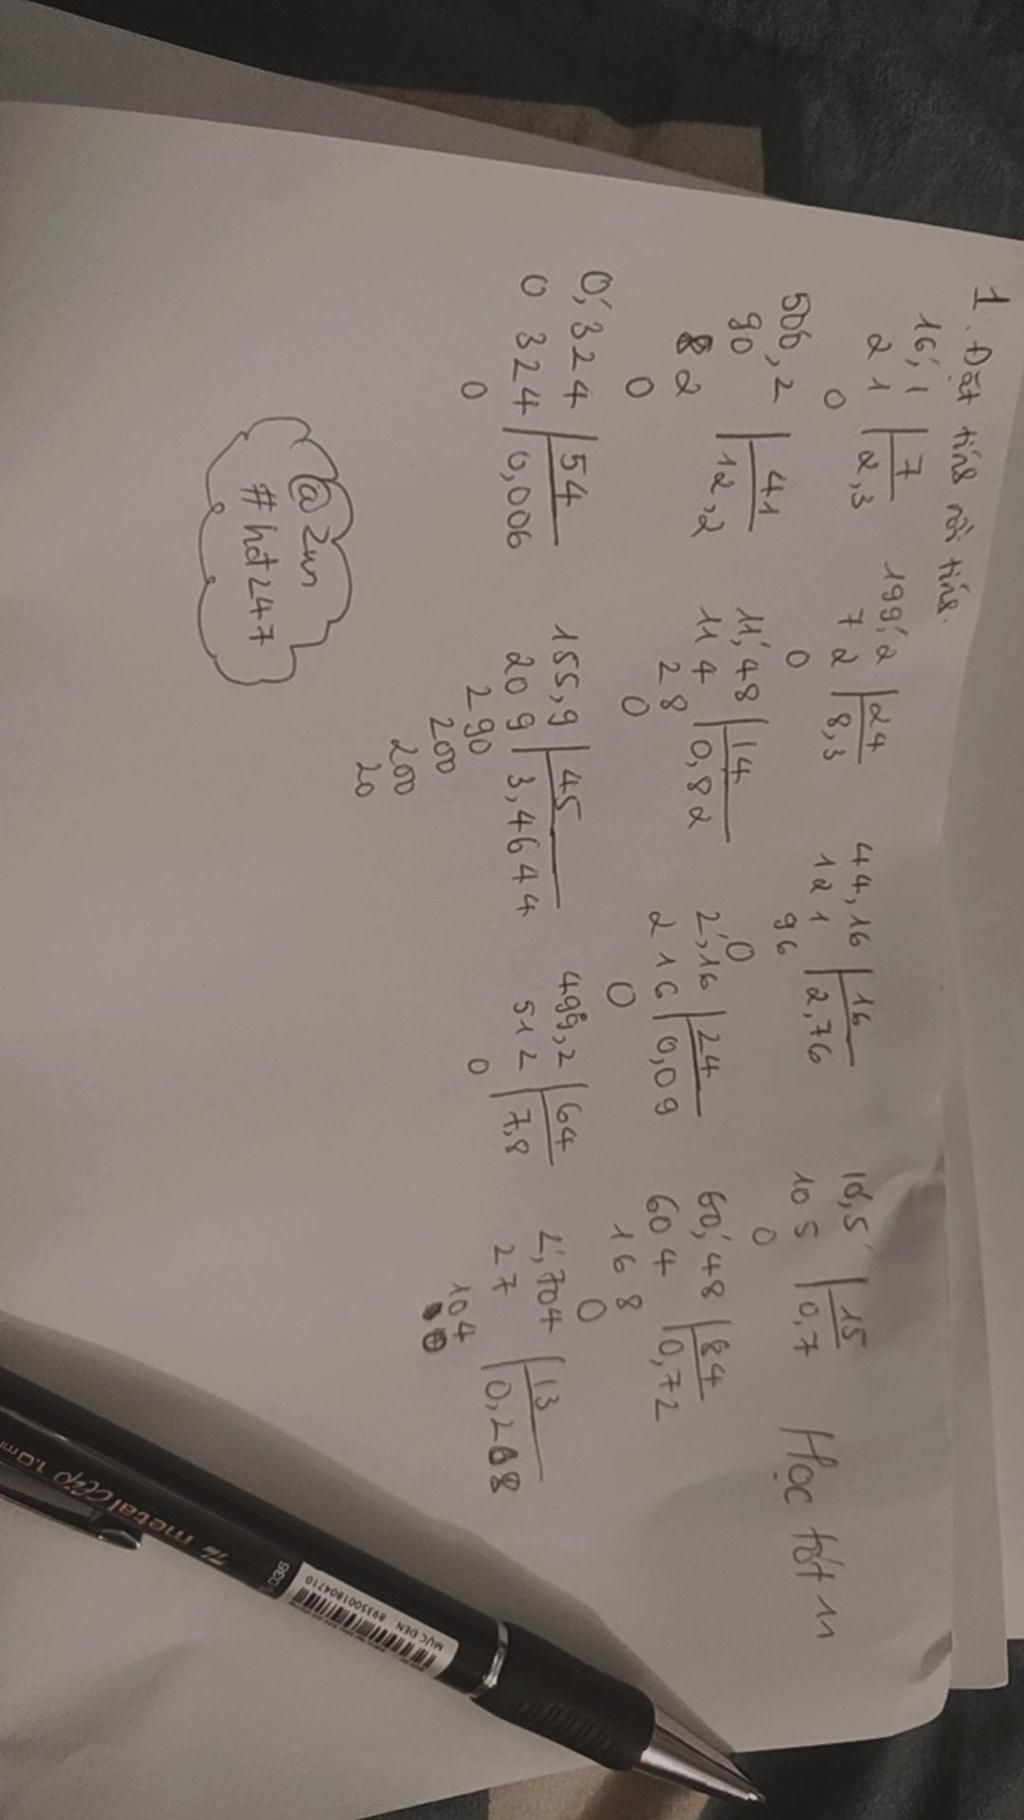 1. Đặt tính rồi tính.
16,1 | 7
2 1 | 2,3
0
199,2 | 24
7 2 | 8,3
0
44,16 | 16
12 1 | 2,76
96
10,5 | 15
10 5 | 0,7
0
Học tốt
500,2 | 41
90 | 12,2
8 2
0
11,48 | 14
11 4 | 0,82
2 8
0
2,16 | 24
2 16 | 0,09
0
0
60,48 | 84
60 4 | 0,72
1 6 8
0
0,324 | 54
0 324 | 0,006
0
155,9 | 45
20 9 | 3,4644
2 90
200
200
20
499,2 | 64
51 2 | 7,8
0
2,704 | 13
2 7 | 0,208
104
0
@zun
#hd247
metalclip 1.0m
036
MỰC ĐEN
8935001804710